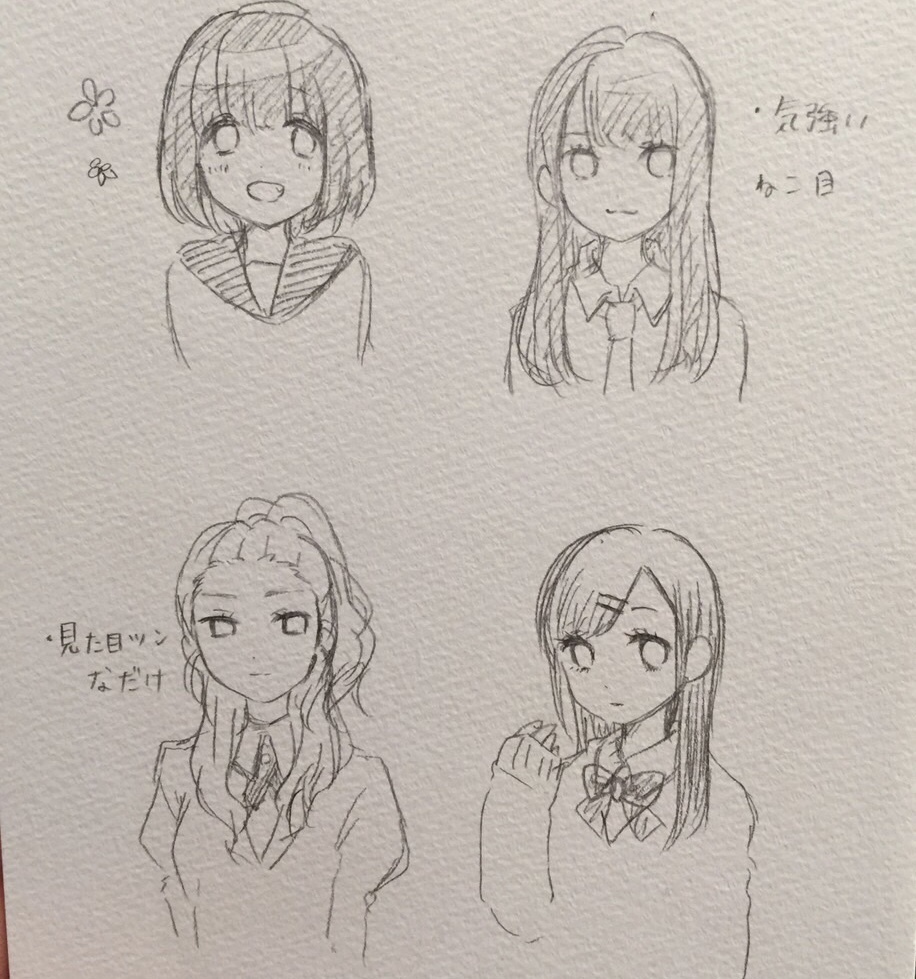 ・気強い
ねこ目
・見た目ツン
なだけ